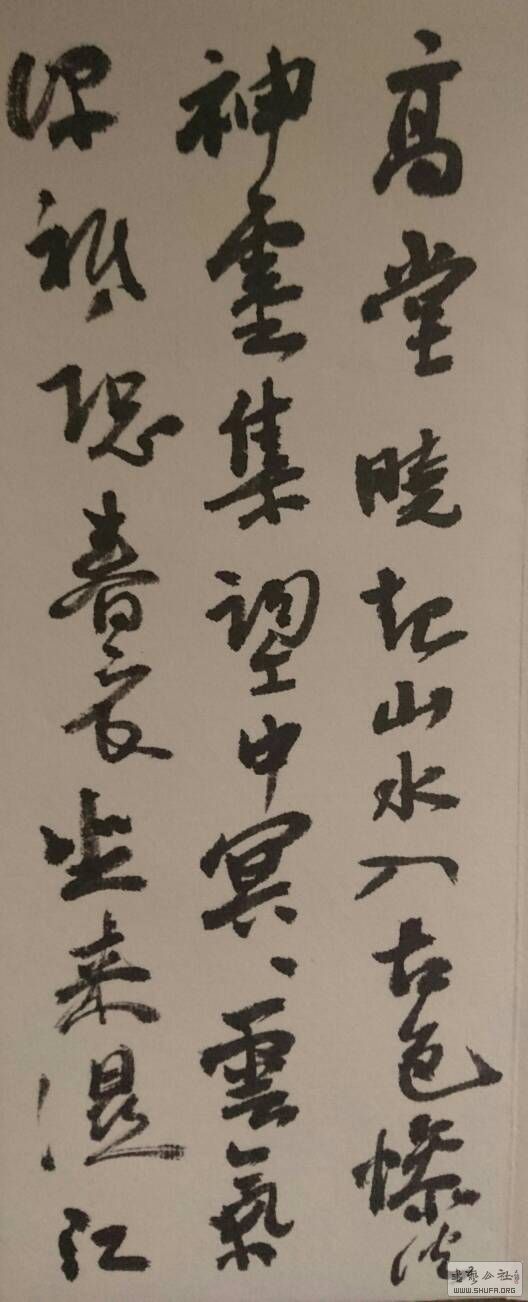 高堂曉起山水入古色慘淡
神靈集望中冥、雲氣
深祇恐春衣坐来濕江
書藝公社
WWW.SHUFA.ORG